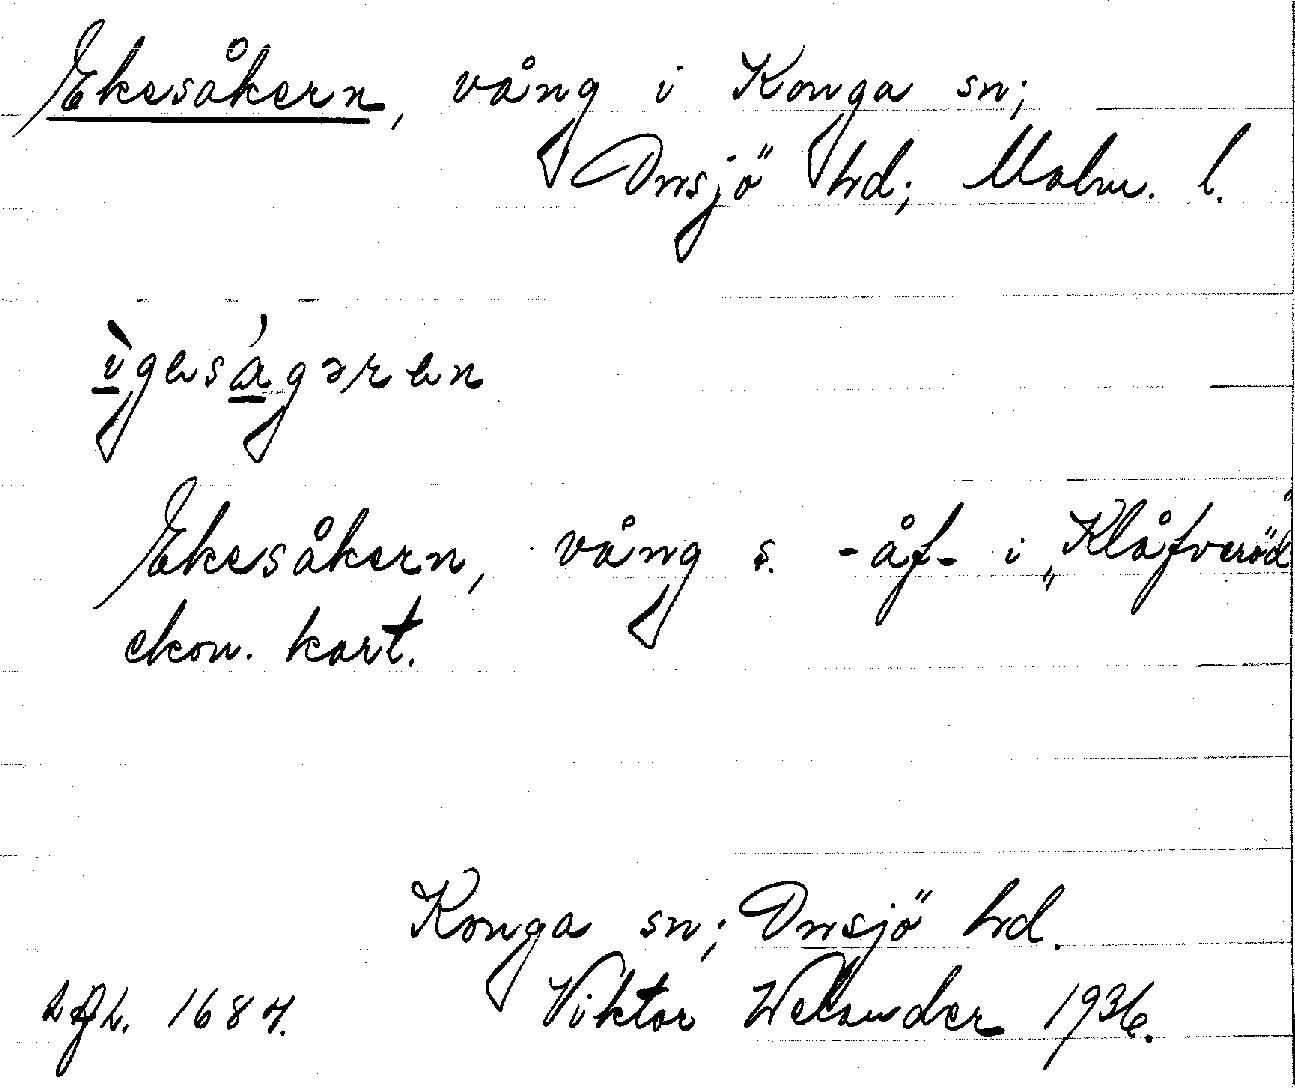 Ekesåkern, vång i Konga sn;
Onsjö hd; Malm. l.
ìgeságəren
Ekesåkern, vång s. -åf- i „Klåfveröd"
ekon. kart.
Konga sn; Onsjö hd.
Viktor Welander 1936.